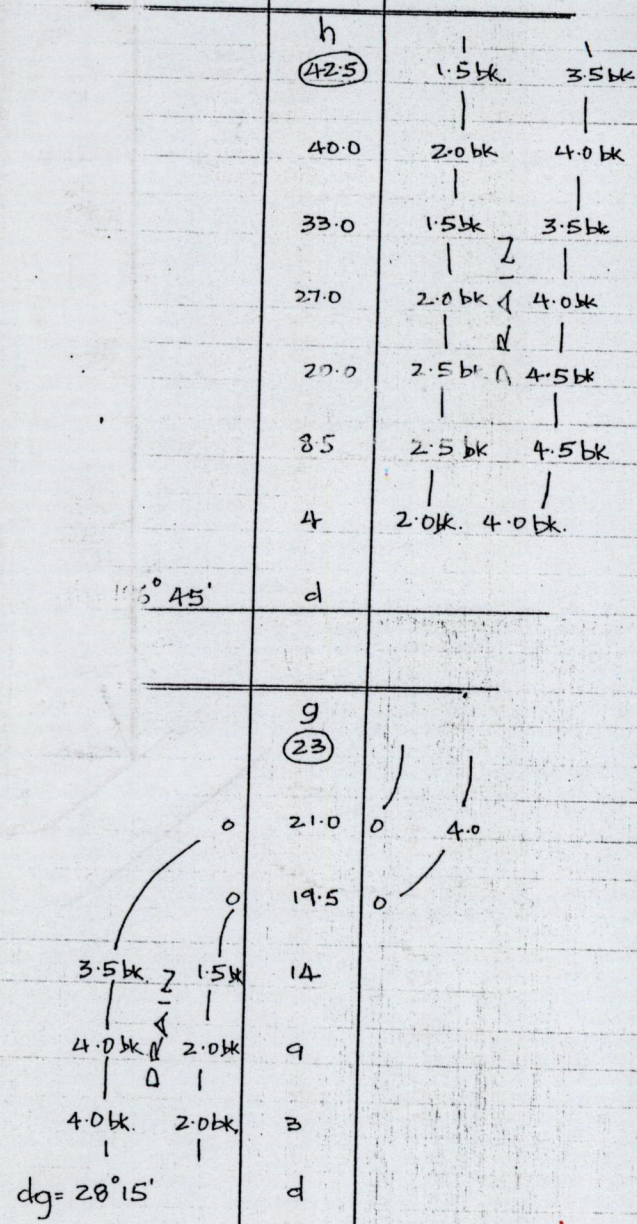 h
42.5 1.5 bk. 3.5 bk
40.0 2.0 bk 4.0 bk
33.0 1.5bk 3.5bk
27.0 2.0 bk 4.0bk
DRAIN
20.0 2.5 bk 4.5bk
8.5 2.5 bk 4.5 bk
4 2.0bk. 4.0 bk.
45' d
g
23
0 21.0 0 4.0
0 19.5 0
3.5 bk. 1.5bk 14
DRAIN
4.0bk 2.0bk 9
4.0bk. 2.0bk. 3
dg = 28°15' d